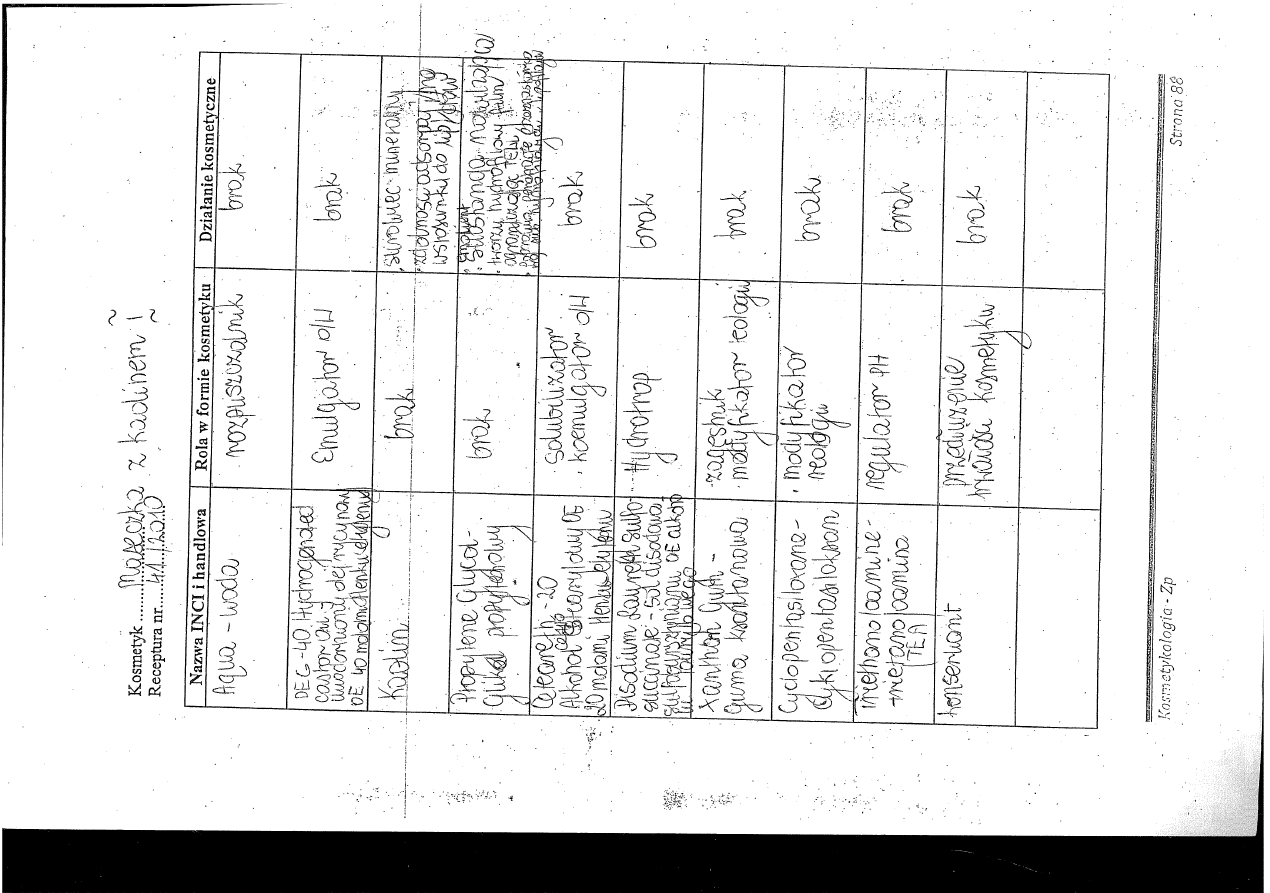 Kosmetyk ..... Maseczka z kaolinem !
Receptura nr. .... 41../2010
Nazwa INCI i handlowa
Rola w formie kosmetyku
Działanie kosmetyczne
Aqua - woda
rozpuszczalnik
brak
PEG-40 Hydrogenated
castor oil
uwodorniony olej rycynowy
OE 40 molami tlenku etylenu
Emulgator O/W
brak
Kaolin
brak
· surowiec mineralny
· zdolność adsorpcyjna
w stosunku do lip
Propylene Glycol -
Glikol propylenowy
brak
· emolient
· substancja nawilżająca
tworzy hydrofilowy film
ograniczając TEWL
Ceteareth - 20
Alkohol cetylostearylowy OE
20 molami tlenku etylenu
solubilizator
· koemulgator O/W
brak
Disodium Laureth sulfo-
succinate - sól disodowa
Hydrotrop
brak
Xanthan Gum -
Guma ksantanowa
· zagęstnik
· modyfikator reologii
brak
Cyclopentasiloxane -
Cyklopentasiloksan
· modyfikator
reologii
brak
trietanoloamina
TEA
regulator pH
brak
konserwant
przedłużenie
trwałości kosmetyku
brak
Kosmetykologia - Zp
Strona 88